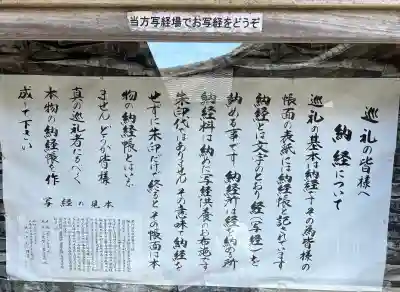 当方写経場でお写経をどうぞ
巡礼の皆様へ
納経について
巡礼の基本は納経です その為皆様の
帳面の表紙には納経帳と記されてます
納経とは文字のとおり経(写経)を
納める事です 納経所は経を納める所
納経料は納めた写経供養のお布施です
朱印代ではありません その意味で納経を
せずに朱印だけで終ると その帳面は本
物の納経帳とはいえ
ません どうか皆様
真の巡礼者になるべく
本物の納経帳を作
成して下さい
写経の見本